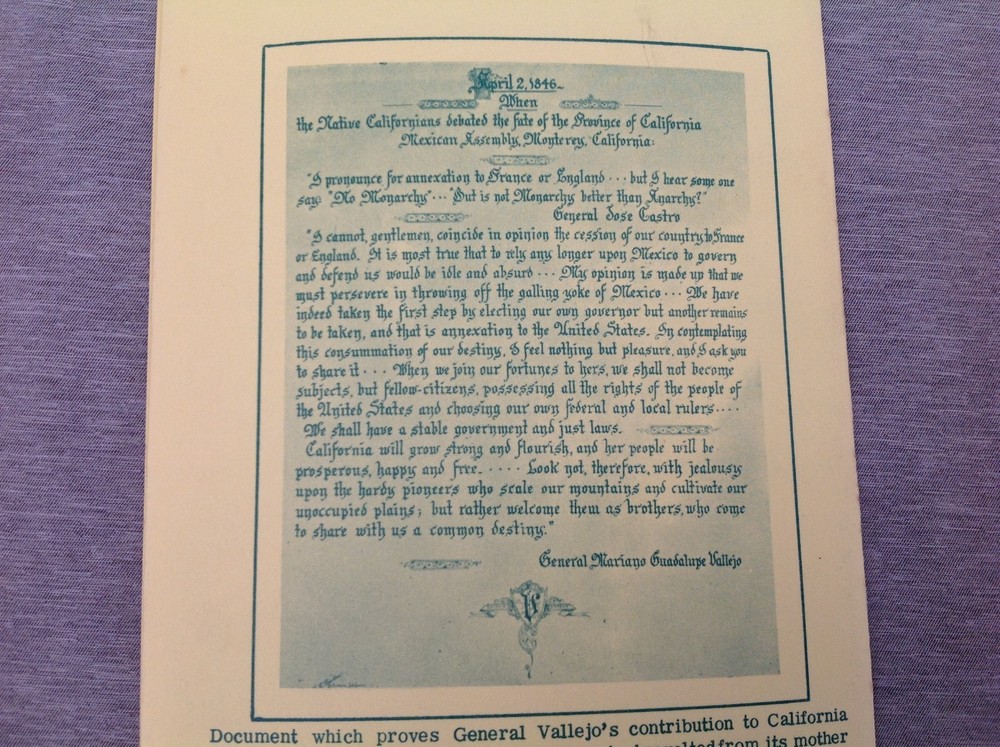 April 2, 1846.
When
the Native Californians debated the fate of the Province of California
Mexican Assembly, Monterey, California:
"I pronounce for annexation to France or England ··· but I hear some one
say "No Monarchy"··· "But is not Monarchy better than Anarchy?"
General Jose Castro
"I cannot, gentlemen, coincide in opinion the cession of our country to France
or England. It is most true that to rely any longer upon Mexico to govern
and defend us would be idle and absurd ··· My opinion is made up that we
must persevere in throwing off the galling yoke of Mexico ··· We have
indeed taken the first step by electing our own governor but another remains
to be taken, and that is annexation to the United States. In contemplating
this consummation of our destiny, I feel nothing but pleasure, and I ask you
to share it ··· When we join our fortunes to hers, we shall not become
subjects, but fellow-citizens, possessing all the rights of the people of
the United States and choosing our own federal and local rulers····
We shall have a stable government and just laws.
California will grow strong and flourish, and her people will be
prosperous, happy and free. ···· Look not, therefore, with jealousy
upon the hardy pioneers who scale our mountains and cultivate our
unoccupied plains; but rather welcome them as brothers, who come
to share with us a common destiny."
General Mariano Guadalupe Vallejo
V
Document which proves General Vallejo's contribution to California
from its mother